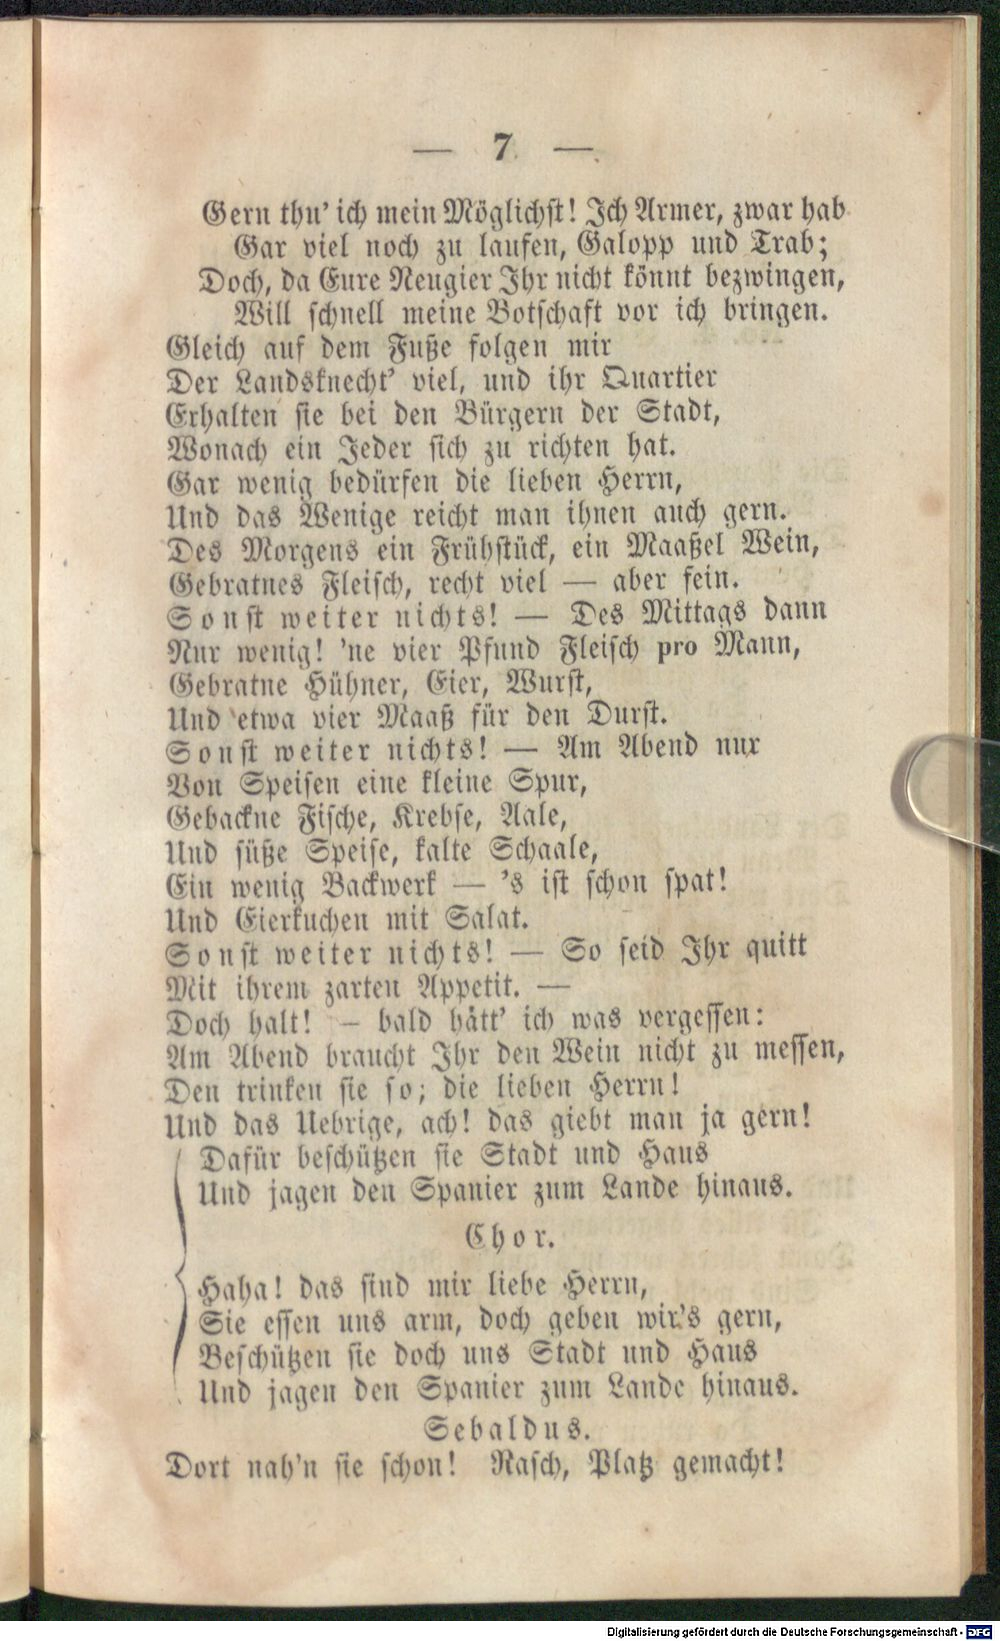 — 7 —
Gern thu' ich mein Möglichst! Ich Armer, zwar hab
Gar viel noch zu laufen, Galopp und Trab;
Doch, da Eure Neugier Ihr nicht könnt bezwingen,
Will schnell meine Botschaft vor ich bringen.
Gleich auf dem Fuße folgen mir
Der Landsknecht' viel, und ihr Quartier
Erhalten sie bei den Bürgern der Stadt,
Wonach ein Jeder sich zu richten hat.
Gar wenig bedürfen die lieben Herrn,
Und das Wenige reicht man ihnen auch gern.
Des Morgens ein Frühstück, ein Maaßel Wein,
Gebratnes Fleisch, recht viel — aber fein.
Sonst weiter nichts! — Des Mittags dann
Nur wenig! 'ne vier Pfund Fleisch pro Mann,
Gebratne Hühner, Eier, Wurst,
Und etwa vier Maaß für den Durst.
Sonst weiter nichts! — Am Abend nur
Von Speisen eine kleine Spur,
Gebackne Fische, Krebse, Aale,
Und süße Speise, kalte Schaale,
Ein wenig Backwerk — 's ist schon spat!
Und Eierkuchen mit Salat.
Sonst weiter nichts! — So seid Ihr quitt
Mit ihrem zarten Appetit. —
Doch halt! — bald hätt' ich was vergessen:
Am Abend braucht Ihr den Wein nicht zu messen,
Den trinken sie so; die lieben Herrn!
Und das Uebrige, ach! das giebt man ja gern!
Dafür beschützen sie Stadt und Haus
Und jagen den Spanier zum Lande hinaus.
Chor.
Haha! das sind mir liebe Herrn,
Sie essen uns arm, doch geben wir's gern,
Beschützen sie doch uns Stadt und Haus
Und jagen den Spanier zum Lande hinaus.
Sebaldus.
Dort nah'n sie schon! Rasch, Platz gemacht!
Digitalisierung gefördert durch die Deutsche Forschungsgemeinschaft - DFG